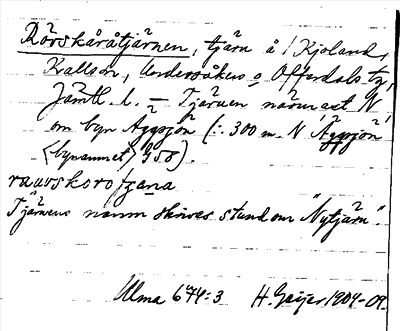 Rörskåråtjärnen, tjärn å Kjoland,
Kallsn, Undersåkers o Offerdals tg,
Jämtl. l. — Tjärnen närmast N
om byn Äggsjön (: 300 m. N "Äggsjön"
(bynamnet) 458).
Tjärnens namn skrives stundom "Nytjärn".
Ulma 674:3 H. Geijer 1904-09.